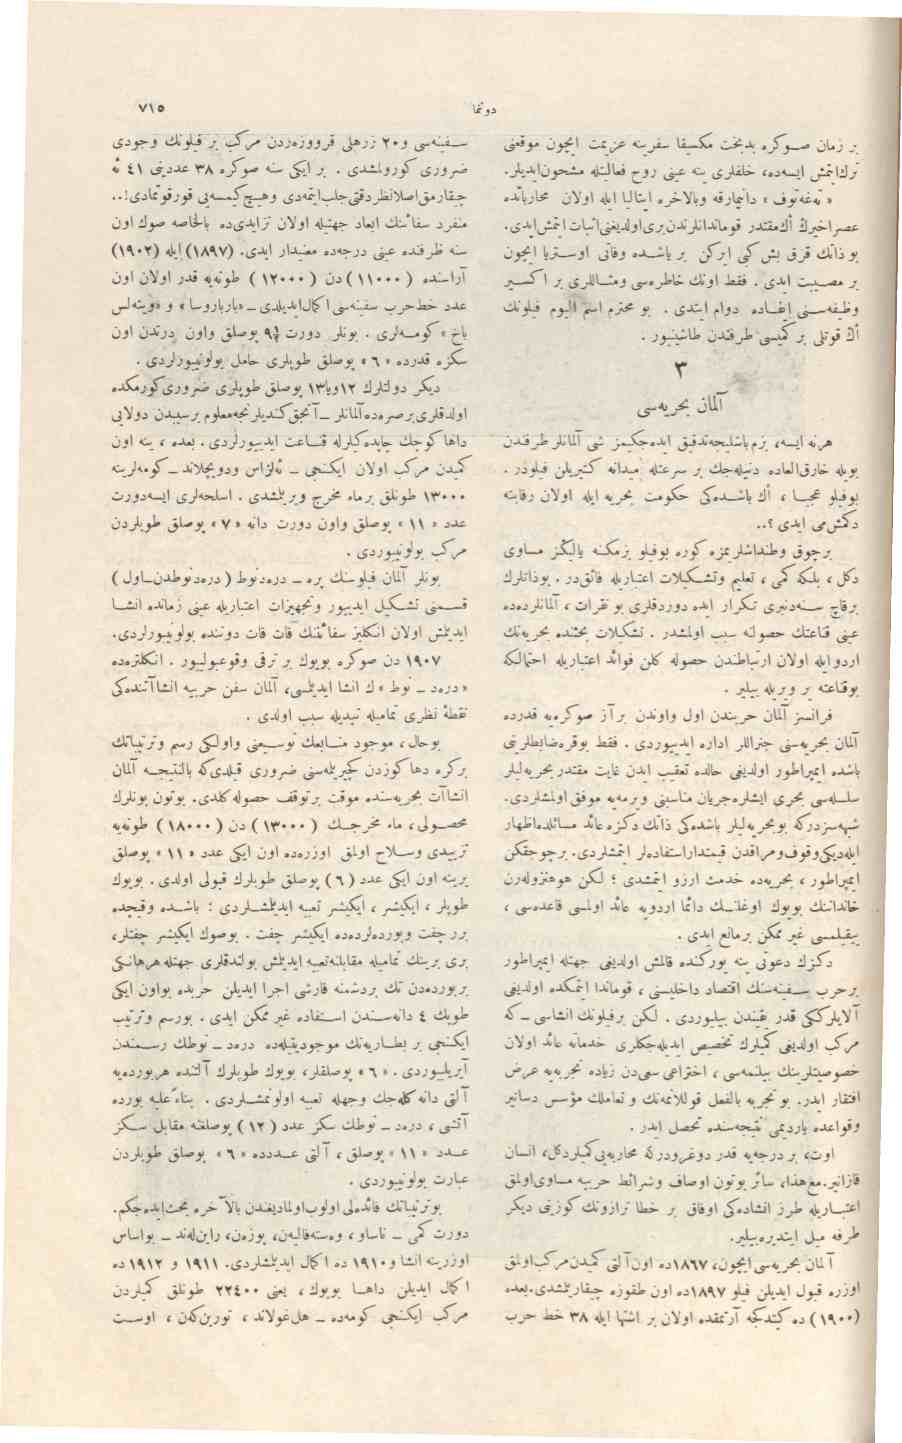 دوننما
٧١٥
بر زمان صوكره بدبخت مكسيقا سفرينه عزيمت ايچون موقعنى
ترك‌ايتمش ايسه‌ده، خلفلرى ينه عينى روح فعاليتله مشحون‌ايديلر.
» ته‌غه‌تهوف « دانيمارقه وبالاخره ايتاليا ايله اولان محارباتده
عصراخيرك اك‌مقتدر قوماندانلرندن‌برى‌اولديغنى‌اثبات ايتمش‌ايدى.
بو ذاتك قرق بش كبى ايركن بر ياشــده وفاتى اوستريا ايچون
بر مصيبت ايدى . فقط اونك خاطره‌سى ومثاللرى بر اكسير
وظيفه‌سنى ايفاده دوام ايتدى . بو محترم اسم اليوم فيلونك
اك قوتلى بر كميسى طرفندن طاشينيور .
٣
آلمان بحريه‌سى
هرنه ايسه، بزم‌باشليجه‌تدقيق ايده‌جكيمز شى آلمانلر طرفندن
بويله خارق‌العاده دنيله‌جك بر سرعتله ميدانه كتيريلن فيلودر .
بوفيلو عجبا ، اك باشده‌كى حكومت بحريه ايله اولان رقابته
دكمش‌مى ايدى ؟..
برچوق وطنداشلريمزه كوره بوفيلو بزمكنه يالكز مساوى
دكل ، بلكه كمى ، تعليم وتشكيلات اعتباريله فائق‌در . بوذاتلرك
برقاچ سنه‌دنبرى تكرار ايده دوردقلرى بو نقرات ، آلمانلرده‌ده
عينى قناعتك حصولنه سبب اولمشدر . تشكيلات بحثنده بحريه‌نك
اردوايله اولان ارتباطندن حصوله كلن فوائد اعتباريله احتمالكه
بوقناعته ير ويريله بيلير .
فرانسز آلمان حربندن اول واوندن برآز صوكره‌يه قدرده
آلمان بحريه‌سنى جنراللر اداره ايدييوردى . فقط بوقره‌ضابطلرينى
باشده ايمپراطور اولديغى حالده تعقيب ايدن غايت مقتدر بحريه‌ليلر
سلسله‌سى بحرى ايشلره‌جريان مناسبنى ويرمه‌يه موفق اولمشلردى.
شبهه‌سزدركه بوبحريه‌ليلر باشده‌كى ذاتك دكزه عائد مسائلده‌اظهار
ايله‌ديكى‌وقوف‌ومراقدن قيمتداراستفاده‌لر ايتمشلردى. برچوجقكن
ايمپراطور ، بحريه‌ده خدمت ارزو ايتمشدى ؛ لكن هوهنزوله‌رن
خانداننك بويوك اوغلنك دائما اردويه عائد اولمسى قاعده‌سى ،
ييقيلمسى غير ممكن برمانع ايدى .
دكزك دعوتى ينه يوركنده قالمش اولديغى جهتله ايمپراطور
برحرب سفينه‌سنك اقتصاد داخليسنى ، قوماندا ايتمكده اولديغى
آلايلرككى قدر يقيندن بيلييوردى . لكن برفيلونك انشاسى ــ كه
مركب اولديغى كميلرك تخصيص ايديله‌جكلرى خدماته عائد اولان
خصوصيتلرينك بيلنمه‌سى ، اختراعى سعى‌دن زياده تجربه‌يه عرض
افتقار ايدر. بو تجربه بالفعل قوللانمه‌نك و تعاملك مؤسس دساتير
وقواعده ياردىمى نتيجه‌سنده تحصل ايدر .
اوت، بر درجه‌يه قدر دوغرودركه محاربه‌يى‌كميلردكل، انسان
قازانير.مع‌هذا، سائر بوتون اوصاف وشرائط حربيه مساوى‌اولمق
اعتباريله طرز انشاده‌كى اوفاق بر خطا ترازونك كوزينى ديكر
طرفه ميل ايتديره‌بيلير.
آلمان بحريه‌سى ايچون، ١٨٦٧ده اون‌آلتى كميدن مركب‌اولمق
اوزره قبول ايديلن فيلو ١٨٩٧ده اون طقوزه چيقاريلمشدى.بعده
(١٩٠٠) ده كيتدكجه آرتمقده اولان بر اشتها ايله ٣٨ خط حرب
سفينه‌سى و ٢٠ زرهلى قرووزه‌ردن مركب بر فيلونك وجودى
ضرورى كورولمشدى . بر ايكى سنه صوكره ٣٨ عددينى ٤١ ه
چيقارمق‌اصلانظردقتى‌جلب‌ايتمه‌دى وهيچ‌كيمسه‌يى قورقوتمادى!..
منفرد سفائنك ابعاد جهتيله اولان تزايدى‌ده بالخاصه صوك اون
سنه ظرفنده عينى درجه‌ده معنيدار ايدى. (١٨٩٧) ايله (١٩٠٢)
آراسنده (١١٠٠٠) دن (١٢٠٠٠) طونه‌يه قدر اولان اون
عدد خط‌حرب سفينه‌سى اكمال‌ايديلدى ــ »بارباروسا« و »ويته‌لس
باخ « كومه‌لرى . بونلر دورت ٩٫ پوصلق واون دردتن اون
سكزه قدرده » ٦ « پوصلق طوپلرى حامل بولونييورلردى .
ديكر دولتلرك ١٢ويا١٣ پوصلق طوپلرى ضرورى‌كورمكده
اولدقلرى‌برصره‌ده‌آلمانلر ــ آنجق‌كنديلرنجه‌معلوم برسببدن دولايى
داها كوچك چاپده‌كيلرله قناعت ايدييورلردى. بعده ، ينه اون
كميدن مركب اولان ايكنجى ــ ئه‌لزاس ودويچلاند ــ كومه‌لرينه
١٣٠٠٠ طونلق برماء مخرج ويريلمشدى . اسلحه‌لرى ايسه‌دورت
عدد » ١١ « پوصلق واون دورت دانه » ٧ « پوصلق طوپلردن
مركب بولونييوردى .
بونلر آلمان فيلوسنك پره ــ دره‌دنوط (دره‌دنوطدن‌ـ‌اول)
قسمنى تشكيل ايدييور وتجهيزات اعتباريله عينى زمانده انشا
ايديلمش اولان انكليز سفائننك قات قات دوننده بولونييورلردى.
١٩٠٧ دن صوكره بويوك بر ترقى وقوعبولييور . انكلتره‌ده
»دره‌د ــ نوط « ك انشا ايديلمسى، آلمان سفن حربيه انشاآتنده‌كى
نقطۀ نظرى تماميله تبديله سبب اولدى .
بوحال، موجود منابعك توسيعنى واولكى رسم وترتيباتك
بركره دها كوزدن كچيريلمه‌سنى ضرورى قيلدى‌كه بالنتيجه آلمان
انشاآت بحريه‌سنده موقت برتوقف حصوله كلدى. بوتون بونلرك
محصولى، ماء مخرجك (١٣٠٠٠) دن (١٨٠٠٠) طونه‌يه
تزييدى وسلاح اولمق اوزره‌ده اون ايكى عدد » ١١ « پوصلق
يرينه اون ايكى عدد (٦) پوصلق طوپلرك قبولى اولدى. بويوك
طوپلر ، ايكيشر ، ايكيشر تعبيه ايديلمشلردى : باشده وقيچده
برر چفت وبوردهلرده‌ده ايكيشر چفت . بوصوك ايكيشر چفتلر،
برى برينك تماميله مقابلنه‌تعبيه ايديلمش بولندقلرى جهتله هرهانكى
بربوردەدن تك بردشمنه قارشى اجرا ايديلن حربده بواون ايكى
طوپك ٤ دانه‌سندن استفاده غير ممكن ايدى . بورسم وترتيب
ايكنجى بر بطاريه‌نك موجوديتيله‌ده دره‌د ــ نوطك رسمندن
آيريلييوردى . »٦ « پوصلقلر، بويوك طوپلرك آلتنده هربورده‌يه
آلتى دانه كله‌جك وجهله تعبيه اولونمشلردى . بناءً عليه بورده
آتشى ، دره‌د ــ نوطك سكز عدد (١٢) پوصلغنه مقابل سكز
عدد » ١١ « پوصلق ، آلتى عددده » ٦ « پوصلق طوپلردن
عبارت بولونييوردى .
بوترتيباتك فائده‌لى اولوب‌اولماديغندن بالآخره بحث‌ايده‌جكم.
دورت كمى ــ ناساو ، وه‌سته‌فاليه‌ن، پوزه‌ن، راين‌له‌ند ــ بواساس
اوزرينه انشا و ١٩١٠ ده اكمال ايديلمشلردى. ١٩١١ و ١٩١٢ ده
اكمال ايديلن داها بويوك ، يعنى ٢٢٤٠٠ طونلق كميلردن
مركب ايكنجى كومه‌ده ــ هل‌غولاند ، تورين‌كه‌ن ، اوست